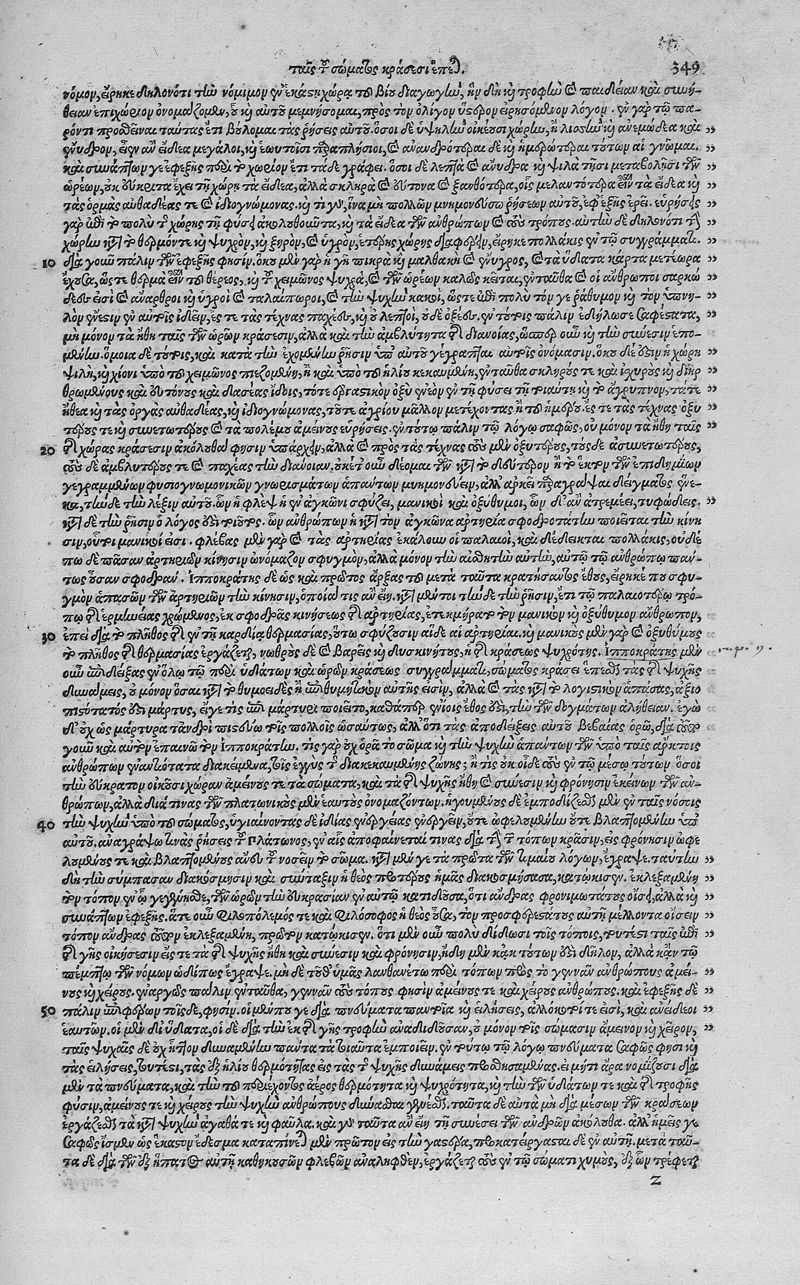 ταῖς τοῦ σώματος κράσεσι ἕπεται. 349
νόμον, εἴρηκε δηλονότι τὴν νόμιμον ἐν ἑκάστῃ χώρᾳ τοῦ βίου διαγωγὴν, ἣν δὴ καὶ τροφὴν καὶ παιδείαν καὶ συνή-
θειαν ἐπιχώριον ὀνομάζομεν, οὗ καὶ αὐτοῦ μεμνήσομαι, πρὸς τὸν ὀλίγον ὕστερον εἰρησόμενον λόγον. ἐν γὰρ τῷ πα-
ρόντι προσθεῖναι ταύτας ἔτι βούλομαι τὰς ῥήσεις αὐτοῦ. ὅσοι δὲ ὑψηλὴν οἰκέουσι χώρην, ἢ λιοσὴν καὶ ἀνεμώδεα καὶ ”
ἔνυδρον, εἶεν ἂν εἴδεα μεγάλοι, καὶ ἑωυτοῖσι παραπλήσιοι, καὶ ἀνανδρότεραι δὲ καὶ ἡμερώτεραι τούτων αἱ γνῶμαι. ”
καὶ συνάπτων γε ἐφεξῆς περὶ τοῦ χωρίου ἔτι τάδε γράφει. ὅσοι δὲ λεπτὰ καὶ ἄνυδρα καὶ ψιλὰ τῇσι μεταβολῇσι τῶν ”
ὡρέων, οὐκ εὔκρητα ἔχει τῇ χώρῃ τὰ εἴδεα, ἀλλὰ σκληρὰ καὶ εὔτονα καὶ ξανθότερα, οἷς μελαντότερα εἶναι τὰ εἴδεα καὶ ”
τὰς ὀργὰς αὐθάδεάς τε καὶ ἰδιογνώμονας. καὶ τί γὰρ, ἵνα μὴ πολλῶν μνημονεύσω ῥήσεων αὐτοῦ, ἐφεξῆς ἐρεῖ. εὑρήσεις ”
γὰρ ἐπὶ τὸ πολὺ τοῦ χώρης τῇ φύσει ἀκολουθοῦντα, καὶ τὰ εἴδεα τῶν ἀνθρώπων καὶ τοὺς τρόπους. αὐτὴν δὲ δηλονότι τὴν
χώρην κατὰ τὸ θερμόν τε καὶ ψυχρὸν, καὶ ξηρὸν, καὶ ὑγρὸν, ἑτέρης χώρης διαφέρειν, εἴρηκε πολλάκις ἐν τῷ συγγράμματι.
10 διὰ γοῦν πάλιν τῶν ἐφεξῆς φησιν. ὅκου μὲν γὰρ ἡ γῆ πικρὰ καὶ μαλθακὴ καὶ ἔνυγρος, καὶ τὰ ὕδατα κάρτα μετέωρα ”
ἔχουσα, ὥστε θερμὰ εἶναι τοῦ θέρεος, καὶ τοῦ χειμῶνος ψυχρὰ, καὶ τῶν ὡρέων καλῶς κεῖται, ἐνταῦθα καὶ οἱ ἄνθρωποι σαρκώ ”
δεές εἰσι καὶ ἄναρθροι καὶ ὑγροὶ καὶ ταλαίπωροι, καὶ τὴν ψυχὴν κακοὶ, ὥστε ἐπὶ πολὺ τόν γε ῥάθυμον καὶ τὸν ὑπνη- ”
λὸν ἔνεστιν ἐν αὐτοῖς ἰδεῖν, ἔς τε τὰς τέχνας παχέες, καὶ οὐ λεπτοὶ, οὐδὲ ὀξέες. ἐν τούτοις πάλιν ἐδήλωσε σαφέστατα, ”
μὴ μόνον τὰ ἤθη ταῖς τῶν ὡρῶν κράσεσιν, ἀλλὰ καὶ τὴν ἀμβλύτητα τῆς διανοίας, ὥσπερ οὖν καὶ τὴν σύνεσιν ἑπο-
μένην. ὅμοια δὲ τούτοις, καὶ κατὰ τὴν ἐχομένην ῥῆσιν ὑπ' αὐτοῦ γέγραπται αὐτοῖς ὀνόμασιν. ὅκου δέ ἐστιν ἡ χώρη ”
ψιλὴ, καὶ χιόνι ὑπὸ τοῦ χειμῶνος πιεζομένη, ἢ καὶ ὑπὸ τοῦ ἡλίου κεκαυμένη, ἐνταῦθα σκληρούς τε καὶ ἰσχυροὺς καὶ διηρ ”
θρωμένους καὶ εὐτόνους καὶ δασέας ἴδοις, τό τε ἐργαστικὸν ὀξὺ ἐνεὸν ἐν τῇ φύσει τῇ τοιαύτῃ καὶ τὸ ἄγρυπνον, τά τε ”
ἤθεα καὶ τὰς ὀργὰς αὐθάδεας, καὶ ἰδιογνώμονας, τό τε ἄγριον μᾶλλον μετέχοντας ἢ τὸ ἥμερον. ἔς τε τὰς τέχνας ὀξυ ”
τέρους τε καὶ συνετωτέρους καὶ τὰ πολέμια ἀμείνους εὑρήσεις. ἐν τούτῳ πάλιν τῷ λόγῳ σαφῶς, οὐ μόνον τὰ ἤθη ταῖς ”
20 τῆς χώρας κράσεσιν ἀκόλουθά φησιν ὑπάρχειν, ἀλλὰ καὶ πρὸς τὰς τέχνας τοὺς μὲν ὀξυτέρους, τοὺς δὲ ἀσυνετωτέρους,
τοὺς δὲ ἀμβλυτέρους τε καὶ παχέας τὴν διάνοιαν. οὐκέτ' οὖν δέομαι τῶν κατὰ τὸ δεύτερον ἢ τὸ ἕκτον τῶν ἐπιδημιῶν
γεγραμμένων φυσιογνωμονικῶν γνωρισμάτων ἁπάντων μνημονεύειν, ἀλλ' ἀρκεῖ παραγράψαι δείγματος ἕνε-
κα, τήνδε τὴν λέξιν αὐτοῦ. ὧν ἡ φλὲψ ἡ ἐν ἀγκῶνι σφύζει, μανικοὶ καὶ ὀξύθυμοι, ὧν δ' ἂν ἀτρεμέει, τυφώδεις. ”
κατὰ δὲ τὴν ῥῆσιν ὁ λόγος ἐστὶ τοιοῦτος. ὧν ἀνθρώπων ἡ κατὰ τὸν ἀγκῶνα ἀρτηρία σφοδροτάτην ποιεῖται τὴν κίνη
σιν, οὗτοι μανικοί εἰσι. φλέβας μὲν γὰρ καὶ τὰς ἀρτηρίας ἐκάλουν οἱ παλαιοὶ, καὶ δέδεικται πολλάκις, οὐδέ
πω δὲ πᾶσαν ἀρτηριῶν κίνησιν ὠνόμαζον σφυγμὸν, ἀλλὰ μόνον τὴν αἰσθητὴν αὐτὴν, αὐτῷ τῷ ἀνθρώπῳ παν-
τως οὖσαν σφοδρὰν. Ἱπποκράτης δὲ ὡς καὶ πρῶτος ἄρξας τοῦ μετὰ ταῦτα κρατήσαντος ἔθους, εἴρηκέ που σφυ-
γμὸν ἁπασῶν τῶν ἀρτηριῶν τὴν κίνησιν, ὁποία τις ἂν εἴη. κατὰ μέντοι τήνδε τὴν ῥῆσιν, ἔτι τῷ παλαιοτέρῳ τρό-
πῳ τῆς ἑρμηνείας χρώμενος, ἐκ σφοδρᾶς κινήσεως τῆς ἀρτηρίας, ἐτεκμήρατο τὸν μανικὸν καὶ ὀξύθυμον ἄνθρωπον,
30 ἐπεὶ διὰ τὸ πλῆθος τῆς ἐν τῇ καρδίᾳ θερμασίας, οὕτω σφύζουσιν αἵδε αἱ ἀρτηρίαι. καὶ μανικοὺς μὲν γὰρ καὶ ὀξυθύμους
τὸ πλῆθος τῆς θερμασίας ἐργάζεται, νωθροὺς δὲ καὶ βαρεῖς καὶ δυσκινήτους, ἡ τῆς κράσεως ψυχρότης. Ἱπποκράτης μὲν
οὖν ἐπιδείξας ἐν ὅλῳ τῷ περὶ ὑδάτων καὶ ὡρῶν κράσεως συγγράμματι, σώματος κράσει ἕπεσθαι τὰς τῆς ψυχῆς
δυνάμεις, οὐ μόνον ὅσαι κατὰ τὸ θυμοειδὲς ἢ ἐπιθυμητικὸν αὐτῆς εἰσιν, ἀλλὰ καὶ τὰς κατὰ τὸ λογιστικὸν ἁπάσας, ἀξιο
πιστότατός ἐστι μάρτυς, εἴγε τις ἐπὶ μάρτυρι ποιεῖτο, καθάπερ ἐνίοις ἔθος ἐστὶ, τὴν τῶν δογμάτων ἀλήθειαν. ἐγὼ
δ' οὐχ ὡς μάρτυρα τἀνδρὶ πιστεύω τοῖς πολλοῖς ὡσαύτως, ἀλλ' ὅτι τὰς ἀποδείξεις αὐτοῦ βεβαίας ὁρῶ, διὰ τοῦτο
γοῦν καὶ αὐτὸν ἐπαινῶ τὸν Ἱπποκράτην. τίς γὰρ οὐχ ὁρᾷ τὸ σῶμα καὶ τὴν ψυχὴν ἁπάντων τῶν ὑπὸ ταῖς ἄρκτοις
ἀνθρώπων ἐναντιώτατα διακείμενα, τοῖς ἐγγὺς τῆς διακεκαυμένης ζώνης; ἢ τίς οὐκ οἶδε τοὺς ἐν τῷ μέσῳ τούτων ὅσοι
τὴν εὔκρατον οἰκοῦσι χώραν ἀμείνους τε τὰ σώματα, καὶ τὰ τῆς ψυχῆς ἤθη καὶ σύνεσιν καὶ φρόνησιν ἐκείνων τῶν ἀν-
θρώπων, ἀλλὰ διά τινας τῶν πλατωνικοὺς μὲν ἑαυτοὺς ὀνομαζόντων. ἡγουμένους δὲ ἐμποδίζεσθαι μὲν ἐν ταῖς νόσοις
40 τὴν ψυχὴν ὑπὸ τοῦ σώματος, ὑγιαίνοντος δὲ ἰδίας ἐνεργείας ἐνεργεῖν, οὔτε ὠφελουμένην οὔτε βλαπτομένην ὑπ'
αὐτοῦ. ἀναγράψω τινὰς ῥήσεις τοῦ Πλάτωνος, ἐν αἷς ἀποφαίνεταί τινας διὰ τὴν τῶν τόπων κρᾶσιν, εἰς φρόνησιν ὠφε
λουμένους τε καὶ βλαπτομένους ἄνευ τοῦ νοσεῖν τὸ σῶμα. κατὰ μέν γε τὰ πρῶτα τῶν Τιμαίου λόγων, ἔγραψε. ταύτην ”
δὴ τὴν σύμπασαν διακόσμησιν καὶ σύνταξιν ἡ θεὸς προτέρους ἡμᾶς διακοσμήσασα, κατῴκισεν. ἐκλεξαμένη ”
τὸν τόπον ἐν ᾧ γεγένησθε, τῶν ὡρῶν τὴν εὐκρασίαν ἐν αὐτῷ κατιδοῦσα, ὅτι ἄνδρας φρονιμωτάτους οἴσει, ἀλλὰ καὶ ”
συνάπτων ἐφεξῆς. ἅτε οὖν φιλοπόλεμός τε καὶ φιλόσοφος ἡ θεὸς οὖσα, τὸν προσφερεστάτους αὐτῇ μέλλοντα οἴσειν ”
τόπον ἄνδρας τοῦτον ἐκλεξαμένη, πρῶτον κατῴκισεν. ὅτι μὲν οὖν πολὺ δίδωσι τοῖς τόποις, τουτέστι ταῖς ἐπὶ ”
τῆς γῆς οἰκήσεσιν εἴς τε τὰ τῆς ψυχῆς ἤθη καὶ σύνεσιν καὶ φρόνησιν, ἤδη μὲν κἀκ τούτων ἐστὶ δῆλον, ἀλλὰ κἂν τῷ
πέμπτῳ τῶν νόμων ὡδίπως ἔγραψε. μηδὲ τοῦθ' ὑμᾶς λανθανέτω περὶ τόπων πρὸς τὸ γεννᾶν ἀνθρώπους ἀμεί- ”
νους καὶ χείρους. ἐναργῶς πάλιν ἐνταῦθα, γεννᾶν τοὺς τόπους φησὶν ἀμείνους τε καὶ χείρους ἀνθρώπους. καὶ ἐφεξῆς δὲ ”
50 πάλιν ἐπιφέρων τοῖσδε, φησίν. οἱ μέν που γε διὰ πνεύματα παντοῖα καὶ εἱλήσεις, ἀλλόκοτοί τέ εἰσι, καὶ ἀνείδεοι ”
ἑαυτῶν. οἱ μὲν δι' ὕδατα, οἱ δὲ διὰ τὴν ἐκ τῆς γῆς τροφὴν ἀναδιδοῦσαν, οὐ μόνον τοῖς σώμασιν ἀμείνων καὶ χεῖρον, ”
ταῖς ψυχαῖς δὲ οὐχ ἧττον δυναμένην πάντα τὰ τοιαῦτα ἐμποιεῖν. ἐν τούτῳ τῷ λόγῳ πνεύματα σαφῶς φησι καὶ
τὰς εἱλήσεις, τουτέστι, τὰς ἐξ ἡλίου θερμότητας εἰς τὰς τῆς ψυχῆς δυνάμεις πεποιημένας. εἰ μή τι ἄρα νομίζουσι διὰ
μὲν τὰ πνεύματα, καὶ τὴν τοῦ περιέχοντος ἀέρος θερμότητα καὶ ψυχρότητα, καὶ τὴν τῶν ὑδάτων τε καὶ τῆς τροφῆς
φύσιν, ἀμείνους τε καὶ χείρους τὴν ψυχὴν ἀνθρώπους δύνασθαι γενέσθαι. ταῦτα δὲ αὐτὰ μὴ διὰ μέσων τῶν κράσεων
ἐργάζεσθαι τὰ κατὰ ψυχὴν ἀγαθά τε καὶ φαῦλα. καὶ γὰρ ταῦτα ἂν εἴη τῇ συνέσει τῶν ἀνδρῶν ἀκόλουθα. ἀλλ' ἡμεῖς γε
σαφῶς ἴσμεν ὡς ἕκαστον ἔδεσμα καταπίνεται μὲν πρῶτον εἰς τὴν γαστέρα, προκατείργασται δὲ ἐν αὐτῇ. μετὰ ταῦ-
τα δὲ διὰ τῶν ἐξ ἥπατος αὐτῇ καθηκουσῶν φλεβῶν ἀναληφθὲν, ἐργάζεται τοὺς ἐν τῷ σώματι χυμοὺς, ἐξ ὧν τρέφεται
Z